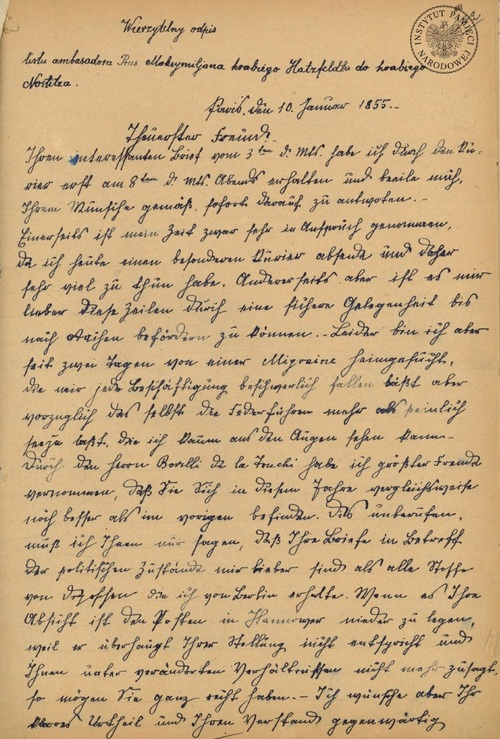 Wierzytelny odpis
listu ambasadora Prus Maksymiljana hrabiego Hatzfeldta do hrabiego
Nostitza.
INSTYTUT PAMIĘCI
NARODOWEJ
Paris, den 10. Januar 1855.-
Theuerster Freund!
Ihren interessanten Brief vom 3ten d. Mts. habe ich durch den Ku-
rier erst am 8ten d. Mts. Abends erhalten und beeile mich,
Ihrem Wunsche gemäß, sofort darauf zu antworten. -
Einerseits ist mein Zeit zwar sehr in Anspruch genommen,
da ich heute einen besonderen Kurier absende und daher
sehr viel zu thun habe. Andererseits aber ist es mir
lieber diese Zeilen durch eine sichere Gelegenheit bis
nach Aachen befördern zu können. - Leider bin ich aber
seit zwei Tagen von einer Migraine heimgesucht,
die mir jede Beschäftigung beschwerlich fallen läßt aber
vorzüglich das selbst die Federführen mehr als peinlich
seyn läßt, da ich kaum aus den Augen sehen kann.-
Durch den Herrn Borelli de la habe ich größter Freude
vernommen, daß Sie Sich in diesem Jahre vergleichsweise
noch besser als im vorigen befinden. Das unberufen,
muß ich Ihnen nur sagen, daß Ihre Briefe in Betreff
der politischen Zustände mir lieber sind als alle
von die ich von Berlin erhalte. Wenn es Ihre
Absicht ist den Posten in Hannover nieder zu legen,
weil er überhaupt Ihrer Stellung nicht entspricht und
Ihnen unter veränderten Verhältnissen nicht mehr zusagt,
so mögen Sie ganz recht haben. - Ich wünsche aber Ihr
klares Urtheil und Ihren Verstand gegenwärtig